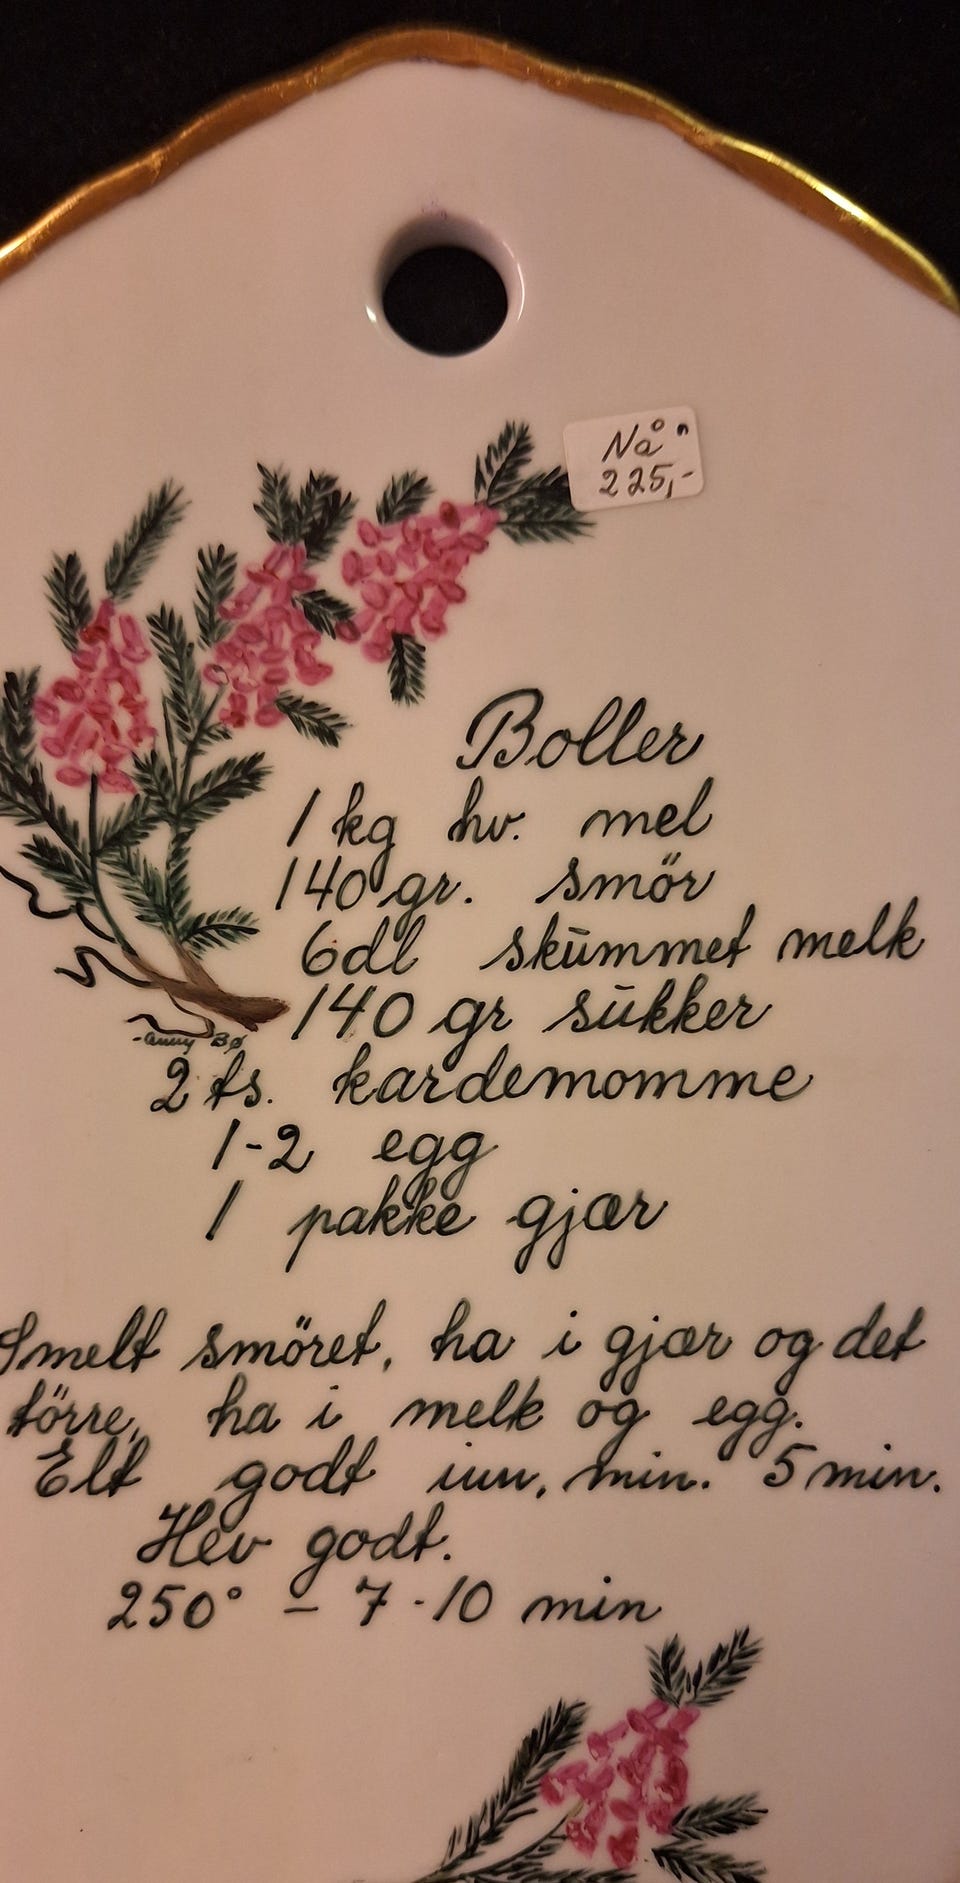 Nå
225,-
Boller
1 kg hv. mel
140 gr. smör
6 dl skūmmet melk
140 gr sūkker
2 ts. kardemomme
1-2 egg
1 pakke gjær
Smelt smöret, ha i gjær og det
törre, ha i melk og egg.
Elt godt inn, min. 5 min.
Hev godt.
250° - 7-10 min